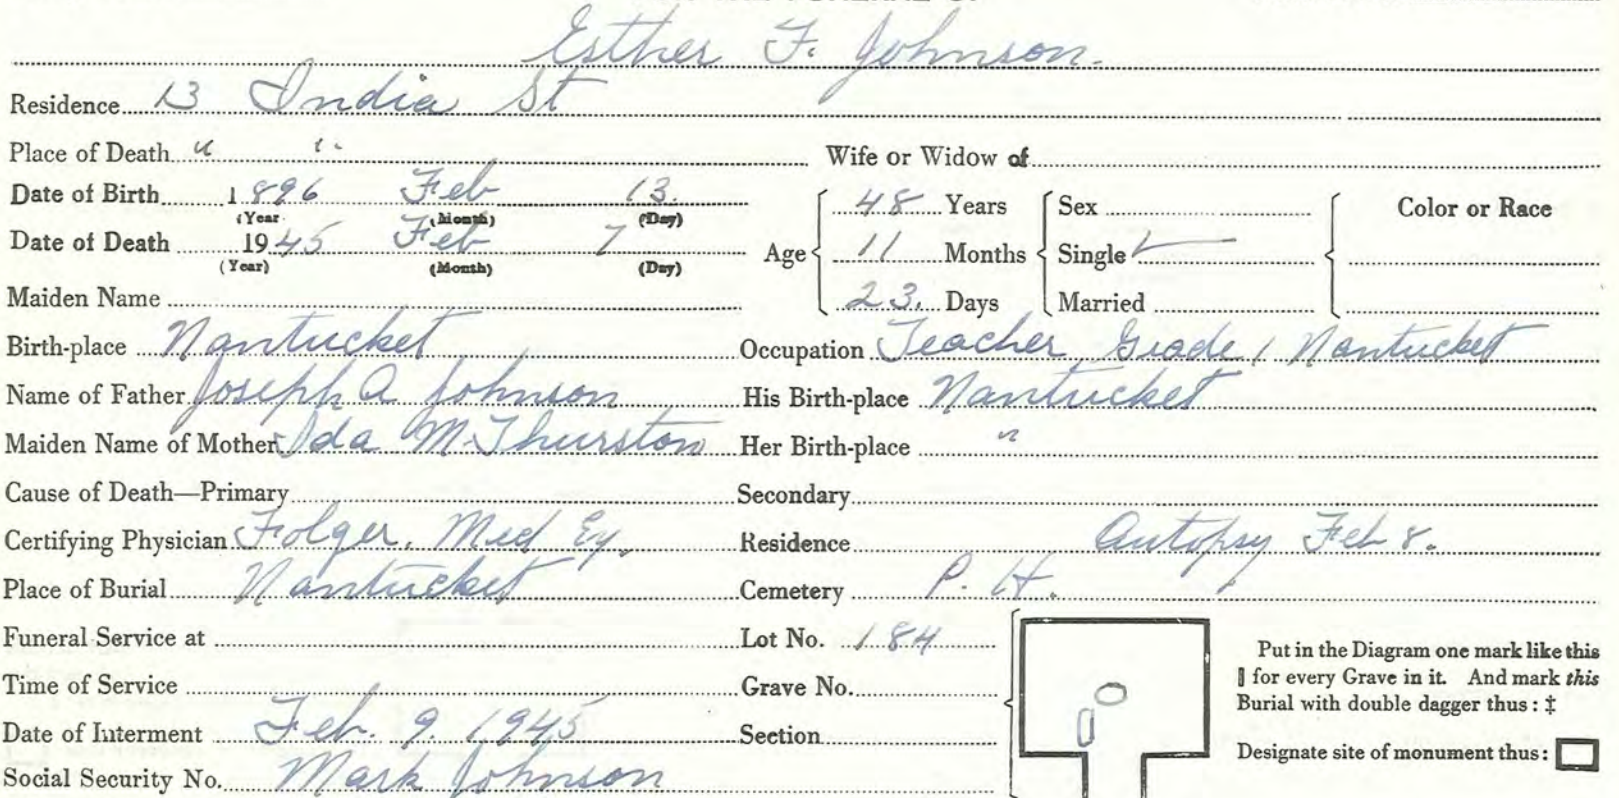 Esther F. Johnson.
Residence 13 India St
Place of Death " " Wife or Widow of
Date of Birth 1896 Feb 13.
(Year (Month) (Day)
Date of Death 1945 Feb 7
(Year) (Month) (Day)
Age 48 Years 11 Months 23. Days
Sex
Single ✓
Married
Color or Race
Maiden Name
Birth-place Nantucket Occupation Teacher Grade 1 Nantucket
Name of Father Joseph A Johnson His Birth-place Nantucket
Maiden Name of Mother Ida M. Thurston Her Birth-place "
Cause of Death—Primary Secondary
Certifying Physician Folger, Med Ex. Residence Autopsy Feb 8.
Place of Burial Nantucket Cemetery P. H.
Funeral Service at Lot No. 184
Time of Service Grave No.
Date of Interment Feb. 9. 1945 Section
Social Security No. Mark Johnson
Put in the Diagram one mark like this
▯ for every Grave in it. And mark this
Burial with double dagger thus: ‡
Designate site of monument thus: